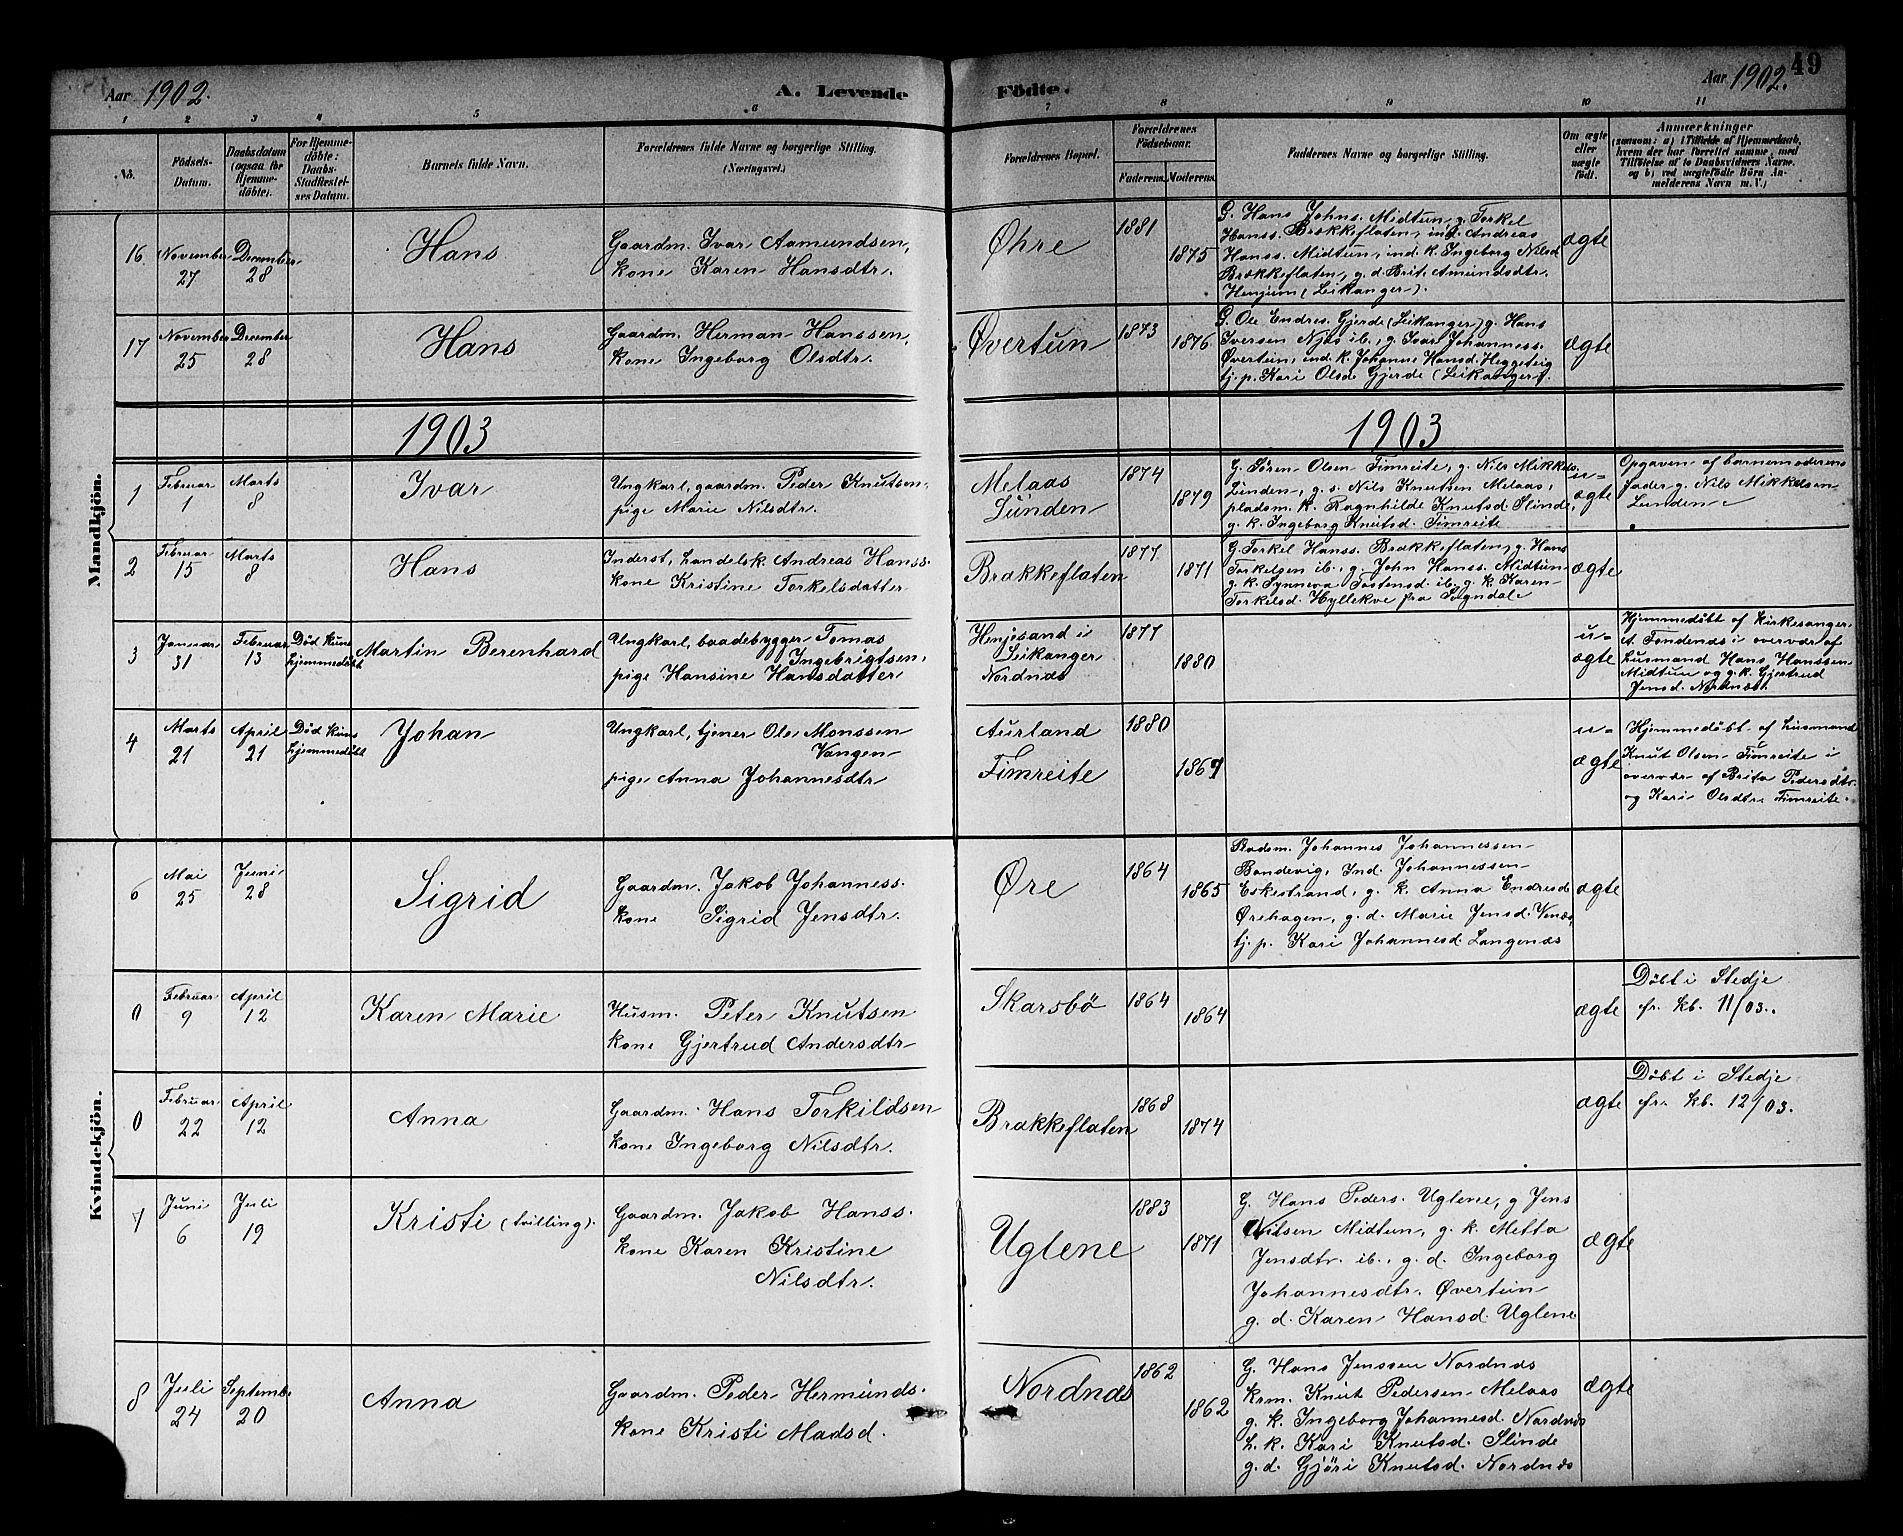 Aar 1902. A. Levende Födte. Aar 1902. 49
1 2 3 4 5 6 7 8 9 10 11
No.
Födsels-Datum.
Daabsdatum (ogsaa for Hjemmedöbte).
For Hjemmedöbte: Daabs-Stadfestelses Datum.
Barnets fulde Navn.
Forældrenes fulde Navne og borgerlige Stilling. (Næringsvei.)
Forældrenes Bopæl.
Forældrenes Födselsaar.
Faderens. Moderens.
Faddernes Navne og borgerlige Stilling.
Om ægte eller uægte födt.
Anmærkninger
(saasom: a) i Tilfælde af Hjemmedaab,
hvem der har forrettet samme, med
Tilföielse af to Daabsvidners Navne.
og b) ved uægtefödte Börn An-
melderens Navn m. V.)
Mandkjön.
16 November 27 December 28 Hans
Gaardm. Ivar Aamundsen,
kone Karen Hansdtr.
Øhre 1881 1875
G. Hans Johns. Midtun, g. Torkel
Hanss. Brækkeflaten, ind. Andreas
Hanss. Midtun, ind. k. Ingeborg Nilsd
Brækkeflaten, g. d. Brit. Amundsdtr.
Henjum (Leikanger).
ægte
17 November 25 December 28 Hans
Gaardm. Herman Hanssen,
kone Ingeborg Olsdtr.
Øvertun 1873 1876
G. Ole Endres. Gjerde (Leikanger) g. Hans
Iversen Njøs ib., g. Ivar Johanness.
Øvertun, ind. k. Johanne Hansd. Heggeteig
tj. p. Kari Olsd. Gjerde (Leikanger).
ægte
1903 1903
1 Februar 1 Marts 8 Ivar
Ungkarl, gaardm. Peder Knutsen
pige Marie Nilsdtr.
Melaas
Lunden
1874 1879
G. Sören Olsen Timreite, g. Nils Mikkels.
Lunden, g. s. Nils Knutsen Melaas,
pladsm. k. Ragnhilde Knutsd. Slinde,
g. k. Ingeborg Knutsd. Timreite
u-
ægte
Opgaven af barnemoderens
fader g. Nils Mikkelsen
Lunden
2 Februar 15 Marts 8 Hans
Inderst, handelsk. Andreas Hanss.
kone Kristine Torkelsdatter
Brækkeflaten 1877 1871
G. Torkel Hanss. Brækkeflaten, g. Hans
Torkelsen ib., g. John Hanss. Midtun
g. k. Synneva Tostensd. ib., g. k. Karen
Torkelsd. Hyllekve fra Sogndale
ægte
3 Januar 31 Februar 13 Död kun hjemmedöbt Martin Berenhard
Ungkarl, baadebygger Tomas
Ingebrigtsen,
pige Hansine Hansdatter
Henjesand i
Leikanger
Nordnæs
1877 1880
u-
ægte
Hjemmedöbt af kirkesanger
A. Tondenæs i overvær af
husmand Hans Hanssen
Midtun og g. k. Gjertrud
Jensd. Nordnæs.
4 Marts 21 April 21 Död kun hjemmedöbt Johan
Ungkarl, tjener Ole Monssen
Vangen
pige Anna Johannesdtr
Aurland
Timreite
1880 1867
u-
ægte
Hjemmedöbt af husmand
Knut Olsen Timreite i
overvær af Brita Pedersdtr.
og Kari Olsdtr. Timreite.
Kvindekjön.
6 Mai 25 Juni 28 Sigrid
Gaardm. Jakob Johanness.
kone Sigrid Jensdtr.
Øre 1864 1865
Pladsm. Johannes Johannessen
Bondevig, Ind. Johannessen
Eskestrand, g. k. Anna Endresd
Ørehagen, g. d. Marie Jensd. Venæs,
tj. p. Kari Johannesd. Langenæs
ægte
0 Februar 9 April 12 Karen Marie
Husm. Peter Knutsen
kone Gjertrud Andersdtr
Skarsbö 1864 1864
ægte
Döbt i Stedje
fr. kb. 11/03.
0 Februar 22 April 12 Anna
Gaardm. Hans Torkildsen
kone Ingeborg Nilsdtr.
Brækkeflaten 1868 1874
ægte
Döbt i Stedje
fr. kb. 12/03.
7 Juni 6 Juli 19 Kristi (tvilling).
Gaardm. Jakob Hanss.
kone Karen Kristine
Nilsdtr.
Uglene 1883 1871
G. Hans Peders. Uglene, g Jens
Nilsen Midtun, g. k. Metta
Jensdtr. ib., g. d. Ingeborg
Johannesdtr. Øvertun
g. d. Karen Hansd. Uglene
ægte
8 Juli 24 September 20 Anna
Gaardm. Peder Hermunds.
kone Kristi Madsd.
Nordnæs 1862 1862
G. Hans Jenssen Nordnæs
krm. Knut Pedersen Melaas
g. k. Ingeborg Johannesd. Nordnæs
h. k. Kari Knutsd. Slinde
g. d. Gjöri Knutsd. Nordnæs
ægte